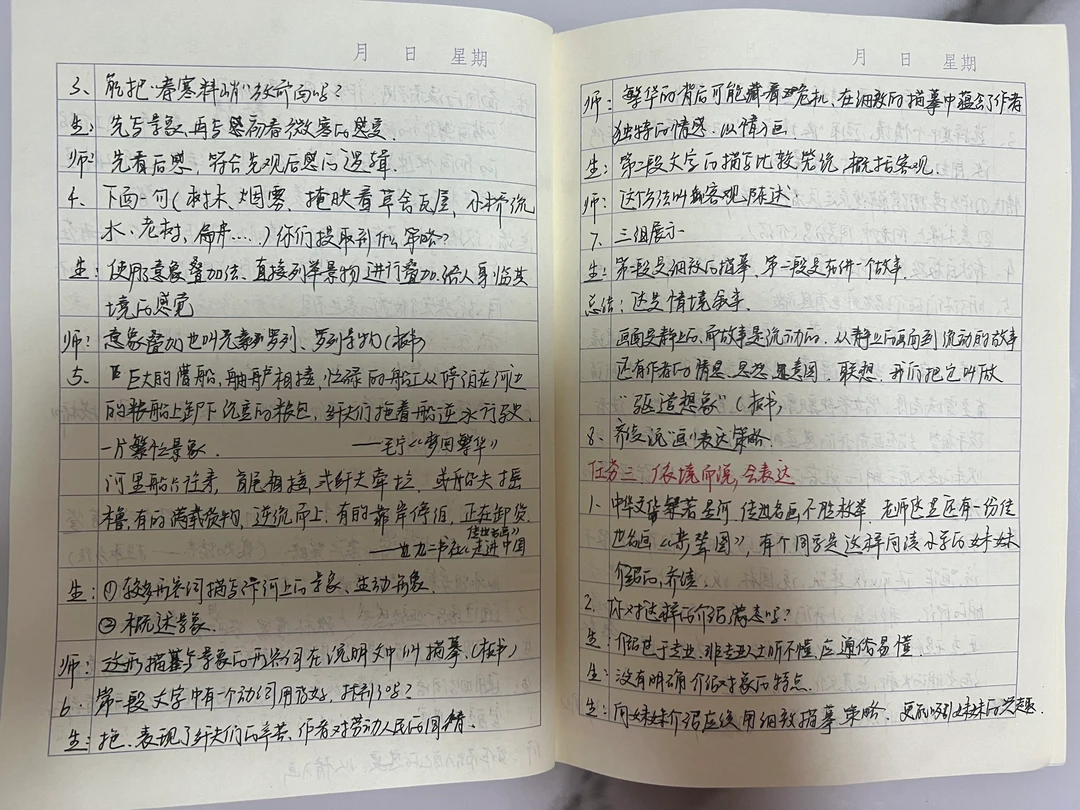 月 日 星期
3、能把“春寒料峭”放前面吗?
生:先写景象,再写感初春微寒的感受.
师:先看后感,符合先观后感的逻辑.
4、下面一句(树木、烟雾、掩映着草舍瓦屋,小桥流
水、老树,扁舟……)你们提取到什么策略?
生:使用了意象叠加法、直接列举景物进行叠加.给人身临其
境的感觉
师:意象叠加也叫元素罗列、罗列景物(板书)
5、巨大的漕船,舳舻相接,忙碌的船工从停泊在河边
的粮船上卸下沉重的粮包,纤夫们拖着船逆水行驶,
一片繁忙景象. ——毛宁《梦回繁华》
河里船只往来,首尾相接,或纤夫牵拉,或船夫摇
橹,有的满载货物,逆流而上,有的靠岸停泊,正在卸货.
——《走进中国传世名画》
生:①较多形容词描写汴河上的景象、生动形象.
②概述景象.
师:这形描摹写景象的形容词在说明文中叫描摹.(板书)
6、第一段文字中有一个动词用很好,找到了吗?
生:拖、表现了纤夫们的辛苦、作者对劳动人民的同情
月 日 星期
师:繁华的背后可能藏着危机、在细致的描摹中蕴含了作者
独特的情感.以情入画
生:第二段文字的描写比较笼统,概括客观.
师:这个方法叫客观陈述
7、三组展示
生:第二段是细致的描摹,第一段是在讲一个故事.
总结:这是情境叙事.
画面是静止的,而故事是流动的.从静止的画面到流动的故事
还有作者的情思、思想、意图、联想、我们把它叫做
“驱遣想象”(板书)
8、齐读“说画”表达策略.
任务三、依境而说,会表达
1、中华文化繁若星河,传世名画不胜枚举,老师这里还有一份传
世名画《步辇图》,有个同学是这样向读小学的妹妹
介绍的,齐读
2、你对这样的介绍满意吗?
生:介绍过于专业、非专业人士听不懂,应通俗易懂.
生:没有明确介绍对象的特点.
生:向妹妹介绍应使用细致描摹策略、更能吸引妹妹的兴趣.